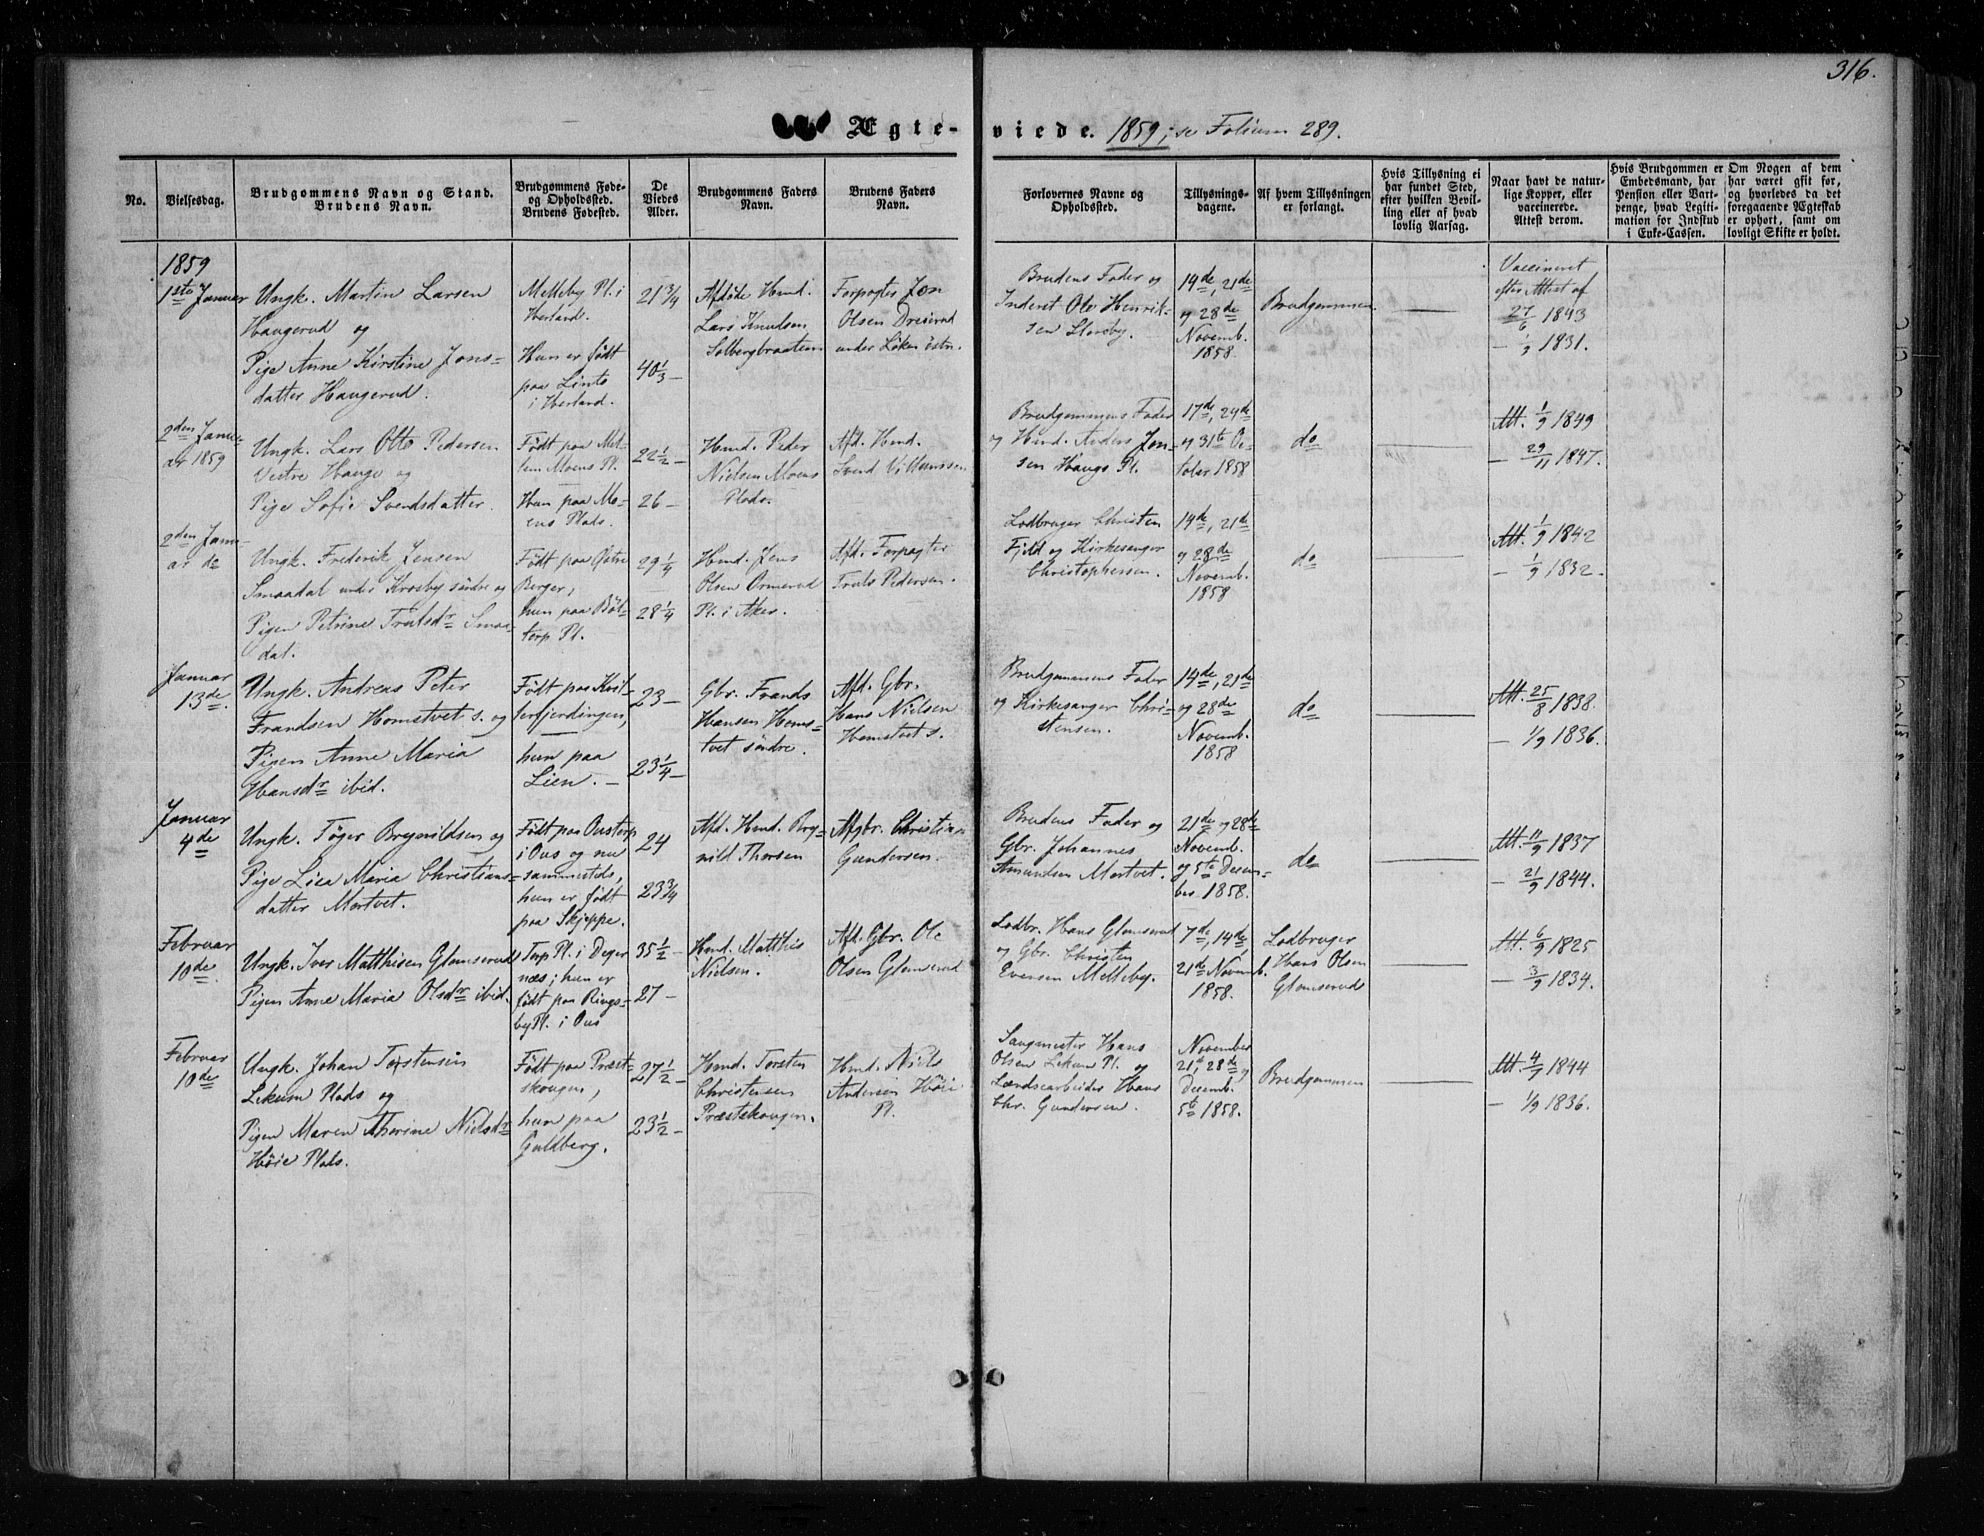 316.
Ægte-
viede. 1859; se Folium 289.
No.
Vielsesdag.
Brudgommens Navn og Stand.
Brudens Navn.
Brudgommens Føde-
og Opholdssted.
Brudens Fødested.
De
Viedes
Alder.
Brudgommens Faders
Navn.
Brudens Faders
Navn.
Forlovernes Navne og
Opholdssted.
Tillysnings-
dagene.
Af hvem Tillysningen
er forlangt.
Hvis Tillysning ei
har fundet Sted,
efter hvilken Bevil-
ling eller af hvad
lovlig Aarsag.
Naar havt de natur-
lige Kopper, eller
vaccinerede.
Attest derom.
Hvis Brudgommen er
Embedsmand, har
Pension eller Vart-
penge, hvad Legiti-
mation for Indskud
i Enke-Cassen.
Om Nogen af dem
har været gift før,
og hvorledes da det
foregaaende Ægteskab
er ophørt, samt om
lovligt Skifte er holdt.
1859
1ste Januar
Ungk. Martin Larsen
Haugerud og
Pige Anne Kirstine Jons-
datter Haugerud.
Melleby Pl. i
Herland.
Hun er født
paa Linto
i Herland.
21 3/4
40 1/3 –
Afdøde Hmd.
Lars Knudsen
Solbergbraaten
Forpagter Jon
Olsen
under Løken østn.
Brudens Fader og
Inderst Ole Henrik-
sen Slorsby.
14de, 21de
og 28de
Novemb.
1858.
Brudgommen
Vaccineret
efter Attest af
27/6 1843
– 1/9 1831.
2den Janu-
ar 1859
Ungk. Lars Otto Pedersen
Vestre Hauge og
Pige Sofie Svendsdatter.
Født paa Mel-
lem Moens Pl.
Hun paa Mo-
ens Plads.
22 1/2 –
26 –
Hmd. Peder
Nielsen Moens
Plads.
Afd. Hmd.
Svend Villumssen
Brudgommens Fader
og Hmd. Anders Jon-
sen Haugs Pl.
17de, 24de
og 31te Oc-
tober 1858
do
Att. 1/9 1849
– 29/11 1847.
2den Janu-
ar do
Ungk. Frederik Jensen
Smaadal under Krosby søndre og
Pigen Petrine Trulsdr Smaa-
dal.
Født paa Østre
Berger,
hun paa Böl-
terp Pl.
29 1/4
28 1/4
Hmd. Jens
Olsen Ormerud
Pl. i Aker.
Afd. Forpagter
Truls Pedersen.
Lodbruger Christen
Fjeld og Kirkesanger
Christophersen.
14de, 21de
og 28de
Novemb.
1858
do
Att. 1/9 1842
– 1/9 1832.
Januar
13de.
Ungk. Andreas Peter
Frandsen Homstvet s. og
Pigen Anne Maria
Hansdr ibid.
Født paa
hun paa
Lien. –
23 –
23 1/4 –
Gbr. Frands
Hansen Homs-
tvet søndre.
Afd. Gbr.
Hans Nielsen
Homstvet s.
Brudgommens Fader
og Kirkesanger Chri-
stensen.
14de, 21de
og 28de
Novemb.
1858
do
Att. 25/8 1838.
– 1/9 1836.
Januar
4de
Ungk. Töger Brynildsen og
Pige Lisa Maria Christians-
datter Mortvet.
Født paa Oustorp
i Ous og nu
sammesteds,
hun er født
paa Skjeppe.
24
23 3/4
Afd. Hmd. Bry-
nild Thorsen
Afgbr. Christian
Gundersen.
Brudens Fader og
Gbr. Johannes
Amundsen Mortvet.
21de og 28de
Novemb.
og 5te Decem-
ber 1858.
do
Att. 11/9 1837
– 21/9 1844.
Februar
10de.
Ungk. Iver Matthisen Glomserud
Pigen Anne Maria Olsdr ibid.
Torp Pl. i Deger
næs; hun er
født paa Rings-
by Pl. i Ous
35 1/2 –
27 –
Hmd. Matthis
Nielsen.
Afd. Gbr. Ole
Olsen Glomserud
Lodbr. Hans Glomserud
og Gbr. Christen
Eversen Melleby.
7de, 14de,
21de Novemb.
1858.
Lodbruger
Hans Olsen
Glomserud
Att. 6/9 1825
– 3/9 1834.
Februar
10de
Ungk. Johan Torstensen
Lekum Plads og
Pigen Maren Thorine Nielsdr
Høie Plads.
Født paa Præst-
skougen,
hun paa
Guldberg.
27 1/2 –
23 1/2 –
Hmd. Torsten
Christensen
Præstskougen.
Hmd. Niels
Andersen Høie
Pl.
Saugmester Hans
Olsen Lekum Pl. og
Landsarbeider Hans
Chr. Gundersen.
November
21de, 28de,
Decemb.
5te 1858.
Brudgommen
Att. 4/7 1844
– 1/9 1836.